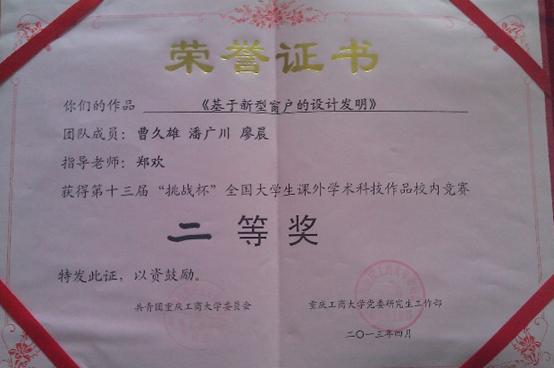 荣誉证书
你们的作品 《基于新型窗户的设计发明》
团队成员：曹久雄 潘广川 廖晨
指导老师：郑欢
获得第十三届“挑战杯”全国大学生课外学术科技作品校内竞赛
二等奖
特发此证，以资鼓励。
共青团重庆工商大学委员会 重庆工商大学党委研究生工作部
二〇一三年四月